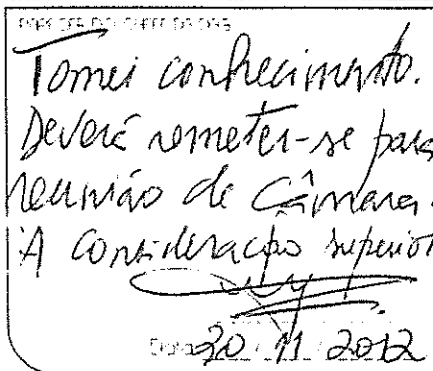 PARECER DO CHEFE DA
Tomei conhecimento.
Deverá remeter-se para
reunião de Câmara.
À Consideração superior
Data 30 / 11 / 2012